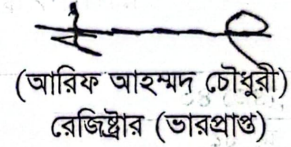 (আরিফ আহম্মদ চৌধুরী)
রেজিষ্ট্রার (ভারপ্রাপ্ত)